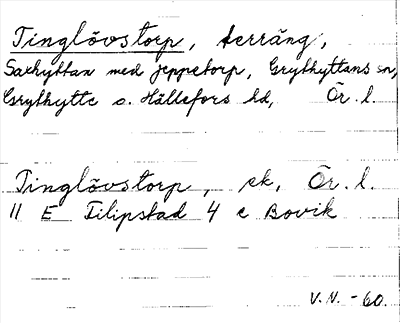 Tinglövstorp, terräng,
Saxhyttan med Jeppetorp, Grythyttans sn,
Grythytte o. Hällefors hd, Ör. l.
Tinglövstorp, ek, Ör. l.
11 E Filipstad 4 e Bovik
V.N. -60.